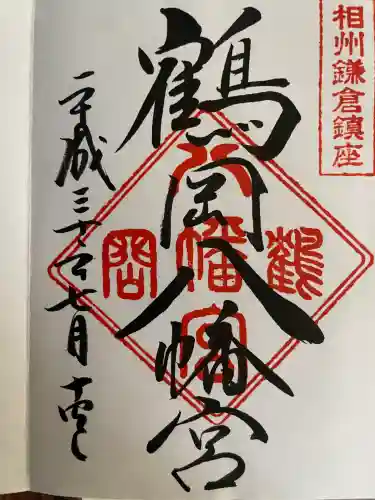 相州鎌倉鎮座
鶴岡八幡宮
鶴岡八幡宮
平成三十年七月十四日